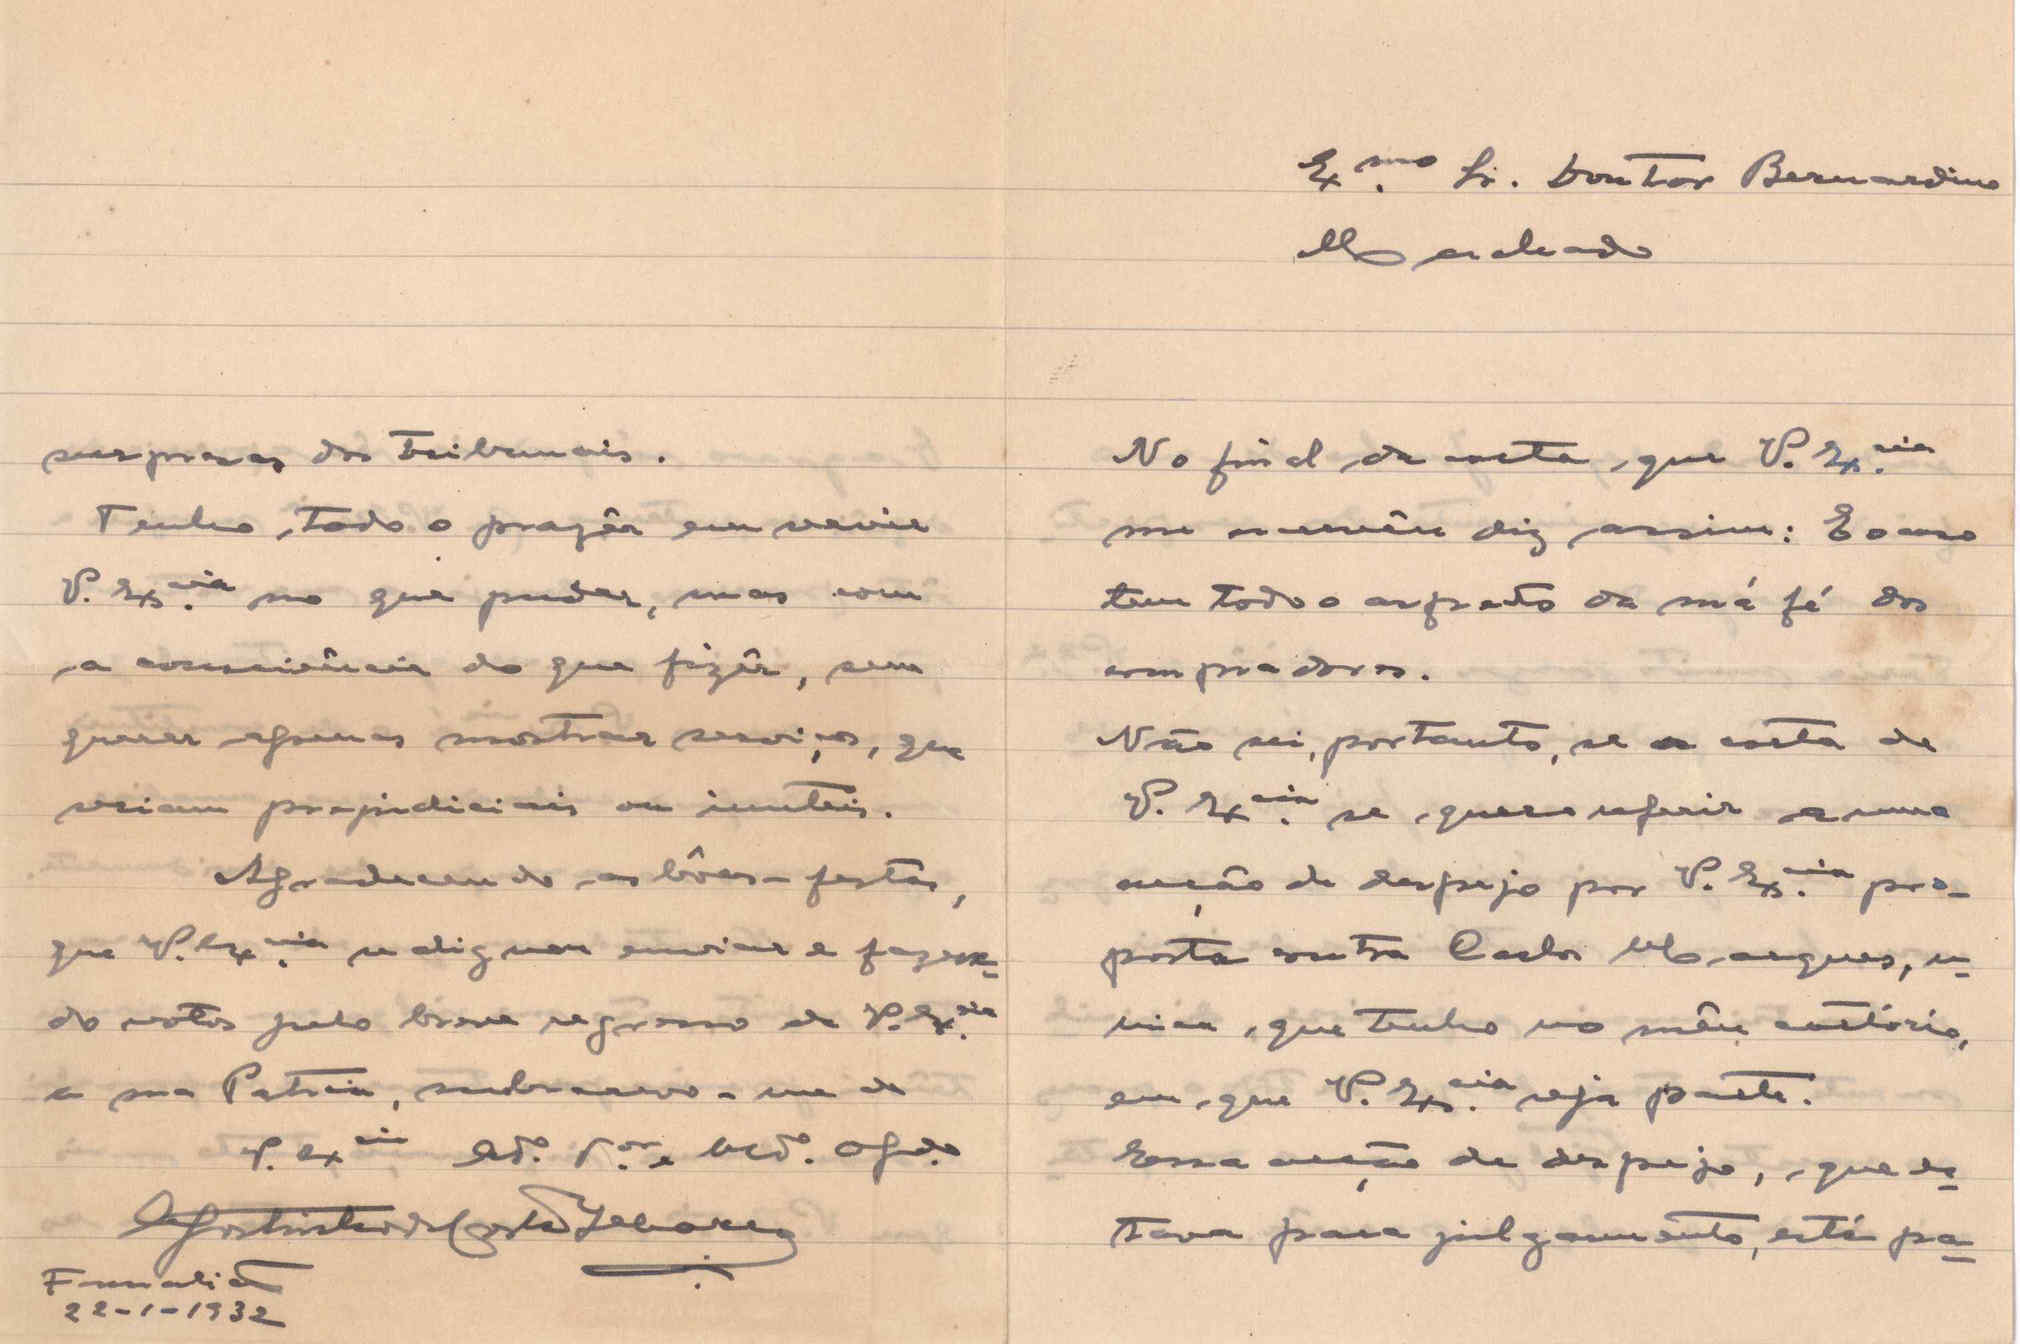 Ex.mo Sr. Doutor Bernardino
Machado
No final da carta, que V. Ex.cia
me escreveu diz assim: E o caso
tem todo o aspecto da má fé dos
compradores.
Não sei, portanto, se a carta de
V. Ex.cia se quere referir a uma
acção de despejo por V. Ex.cia pro-
posta contra Carlos Marques, u-
nica, que tenho no mêu cartório,
em que V. Ex.cia seja parte.
Essa acção de despejo, que es-
tava para julgamento, está pa-
surpresas dos tribunais.
Tenho todo o prazêr em servir
V. Ex.cia no que puder, mas com
a consciência do que fizêr, sem
querer apenas mostrar serviços, que
seriam prejudiciais ou inuteis.
Agradecendo as bôas-festas,
que V. Ex.cia se dignou enviar e fazen-
do votos pelo breve regresso de V. Ex.cia
a sua Patria, subscrevo-me de
V. Ex.cia At.º V.or e Obgd.o
Costa
Famalicão
22-1-1932